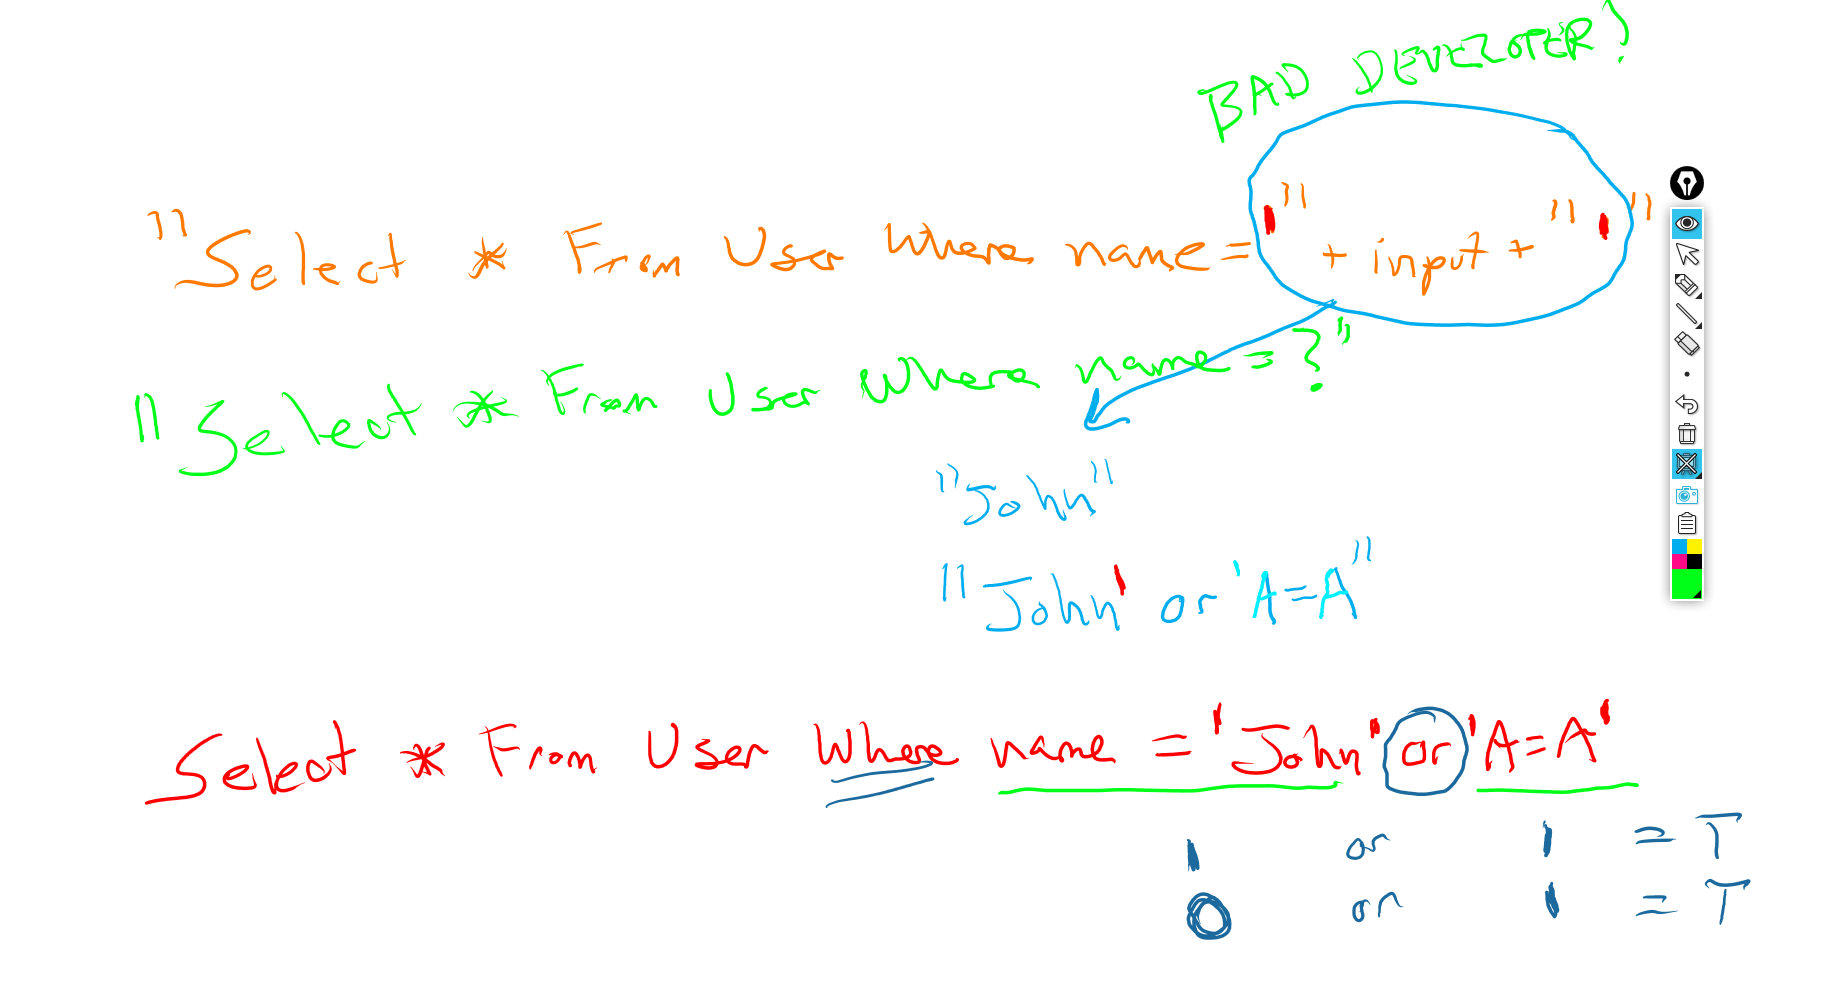 BAD DEVELOPER!
"Select * From User Where name = '" + input + "'"
"Select * From User Where name = ?"
"John"
"John' or 'A=A"
Select * From User Where name = 'John' or 'A=A'
1 or 1 = T
0 or 1 = T